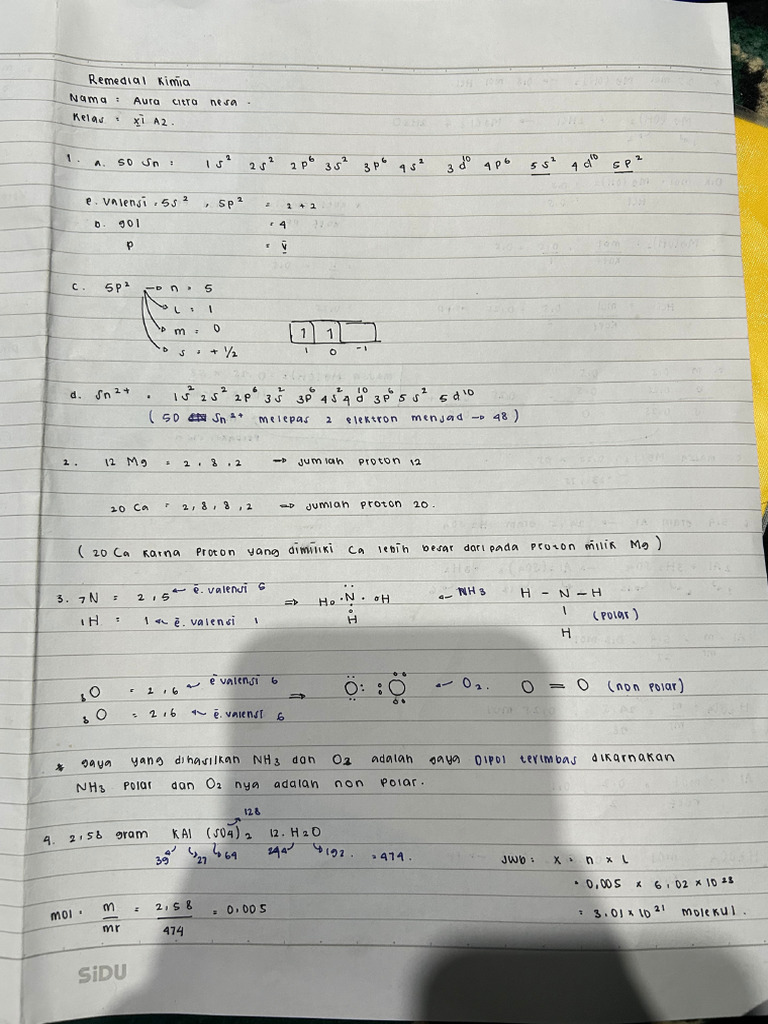 Remedial Kimia
Nama : Aura citra nesa .
Kelas : XI A2.
1. a. 50 Sn : 1s² 2s² 2p⁶ 3s² 3p⁶ 4s² 3d¹⁰ 4p⁶ 5s² 4d¹⁰ 5p²
e. valensi : 5s² , 5p² = 2 + 2
b. gol = 4
p = V
c. 5p² → n = 5
→ L = 1
→ m = 0
→ s = + 1/2
1 1
1 0 -1
d. Sn²⁺ = 1s² 2s² 2p⁶ 3s² 3p⁶ 4s² 4d¹⁰ 3p⁶ 5s² 5d¹⁰
( 50 Sn²⁺ melepas 2 elektron menjad → 48 )
2. 12 Mg = 2 , 8 , 2 → Jumlah proton 12
20 Ca = 2, 8, 8, 2 → Jumlah proton 20.
( 20 Ca karna proton yang dimiliki Ca lebih besar dari pada proton milik Mg )
3. 7N = 2,5 ← e. valensi 5 ⇒ H N H ← NH3 H - N - H
1H = 1 ← e. valensi 1 H | (polar)
H
8O = 2,6 ← e valensi 6 ⇒ O O ← O2. O = O (non polar)
8O = 2,6 ← e. valensi 6
* gaya yang dihasilkan NH3 dan O2 adalah gaya Dipol terimbas dikarnakan
NH3 polar dan O2 nya adalah non polar.
128
4. 2,58 gram KAl (SO4)2 12. H2O
39 27 64 24 192 = 474.
Jwb : x = n x L
= 0,005 x 6,02 x 10²³
= 3.01 x 10²¹ molekul .
mol = m/mr = 2,58/474 = 0,005
SiDU